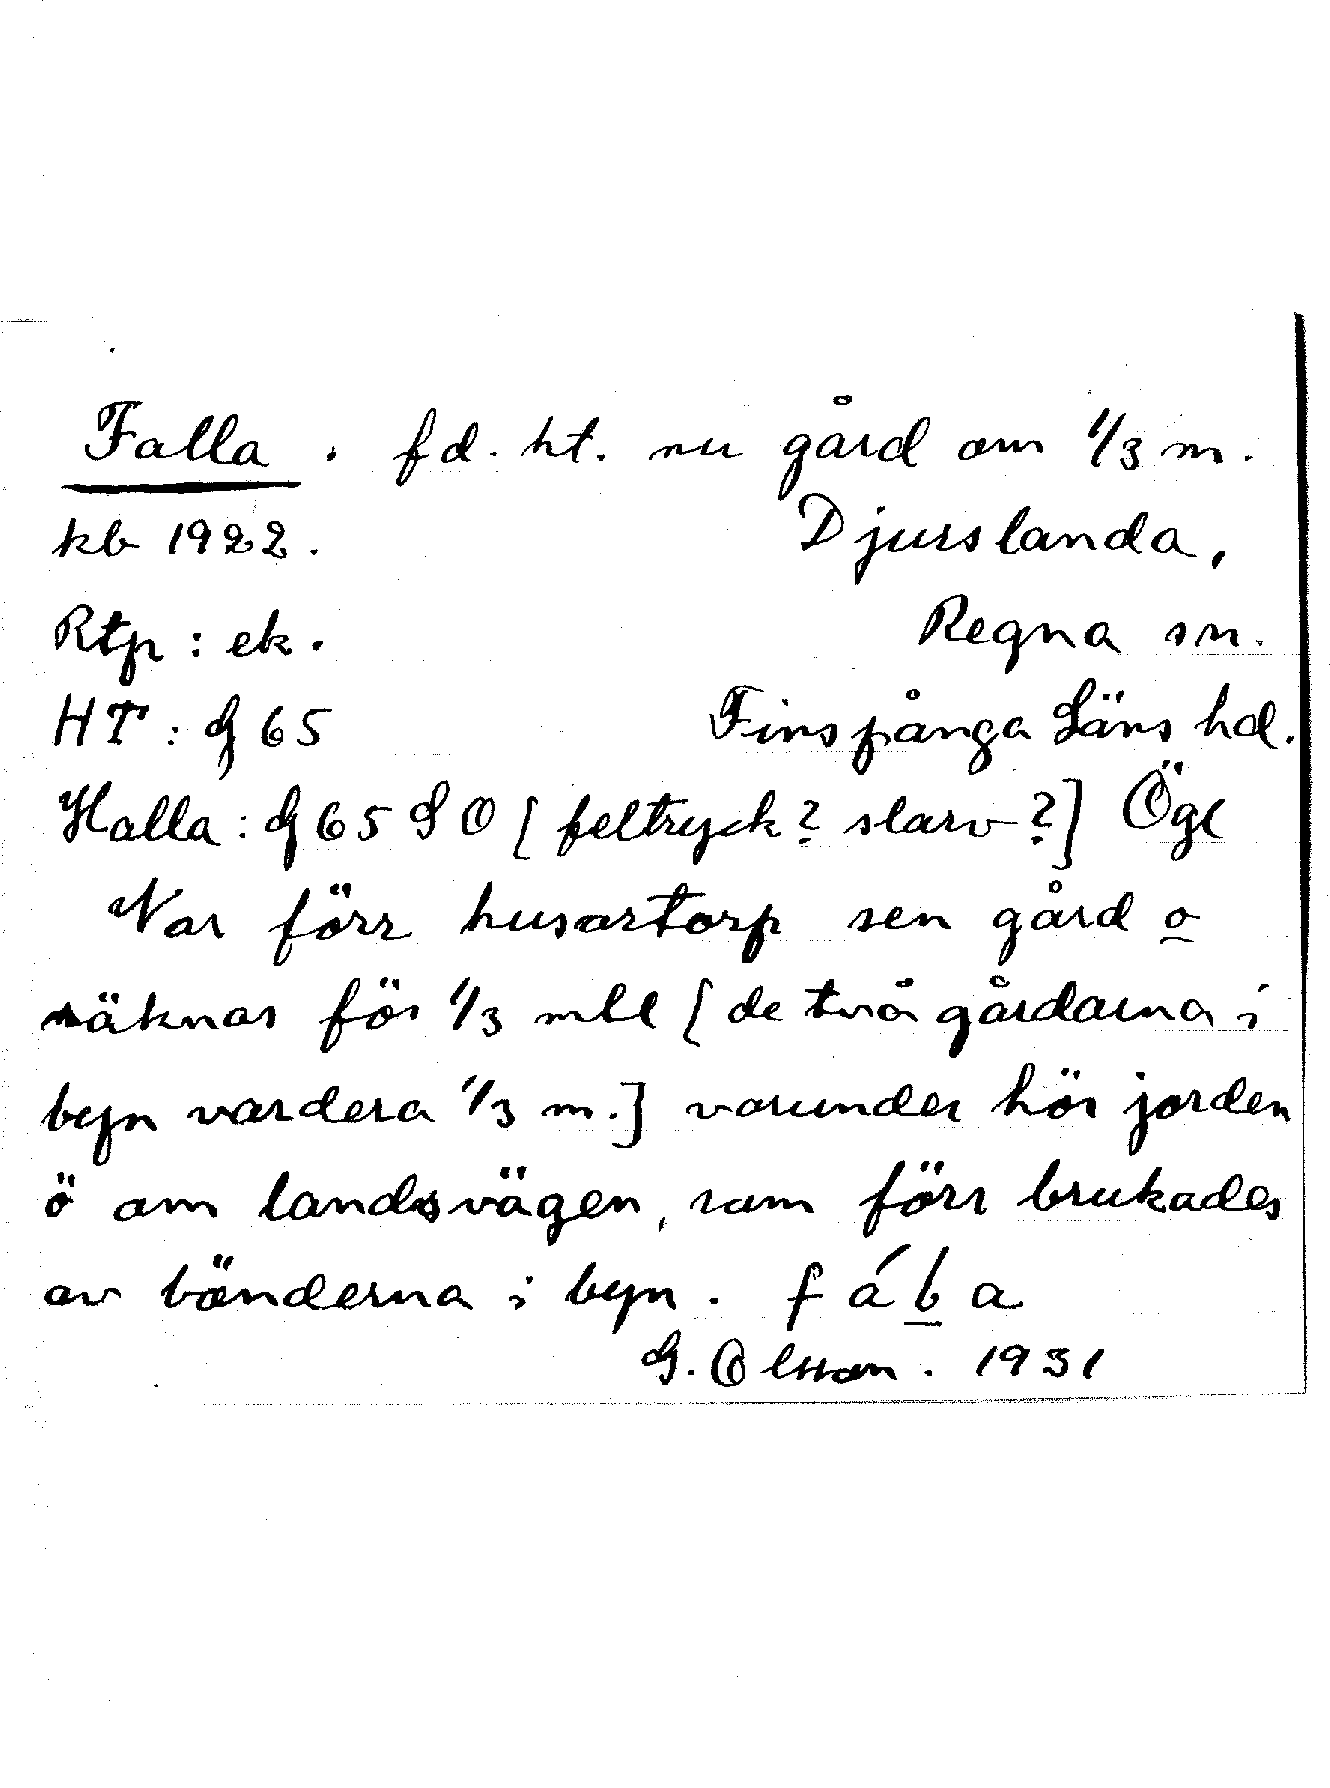 Falla. fd. ht. nu gård om 1/3 m.
kb 1922. Djurslanda,
Rtp: ek. Regna sn.
HT: G 65 Finspånga Läns hd.
Halla: G 65 SO [feltryck? slarv?] Ögl
Var förr husartorp sen gård o
räknas för 1/3 mtl [de två gårdarna i
byn vardera 1/3 m.] varunder hör jorden
ö om landsvägen, som förr brukades
av bönderna i byn. fába
G. Olsson. 1931